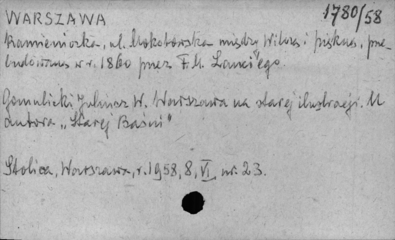 WARSZAWA
1780/58
Kamieniczka, ul. Mokotowska między Wilczą i Piękną, prze
budowana w r. 1860 przez F. M. Lanci'ego.
Gomulicki Juliusz W. Warszawa na starej ilustracji. U
autora „Starej Baśni"
Stolica, Warszawa, r. 1958, 8, VI, nr. 23.